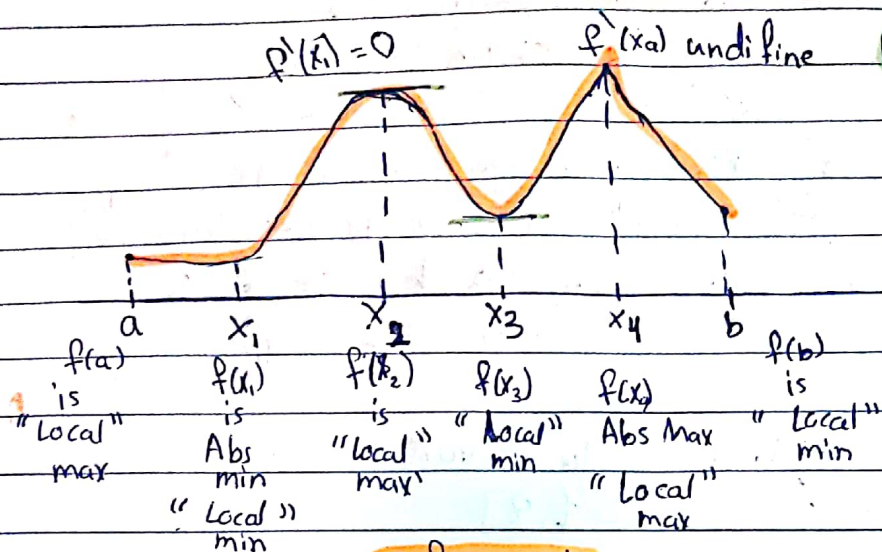 f'(x₁) = 0
f'(xa) undifine
a x₁ x₂ x₃ x₄ b
f(a)
is
"Local"
max
f(x₁)
is
Abs
min
"Local"
min
f(x₂)
is
"local"
max
f(x₃)
"Local"
min
f(x₄)
Abs Max
"Local"
max
f(b)
is
"Local"
min